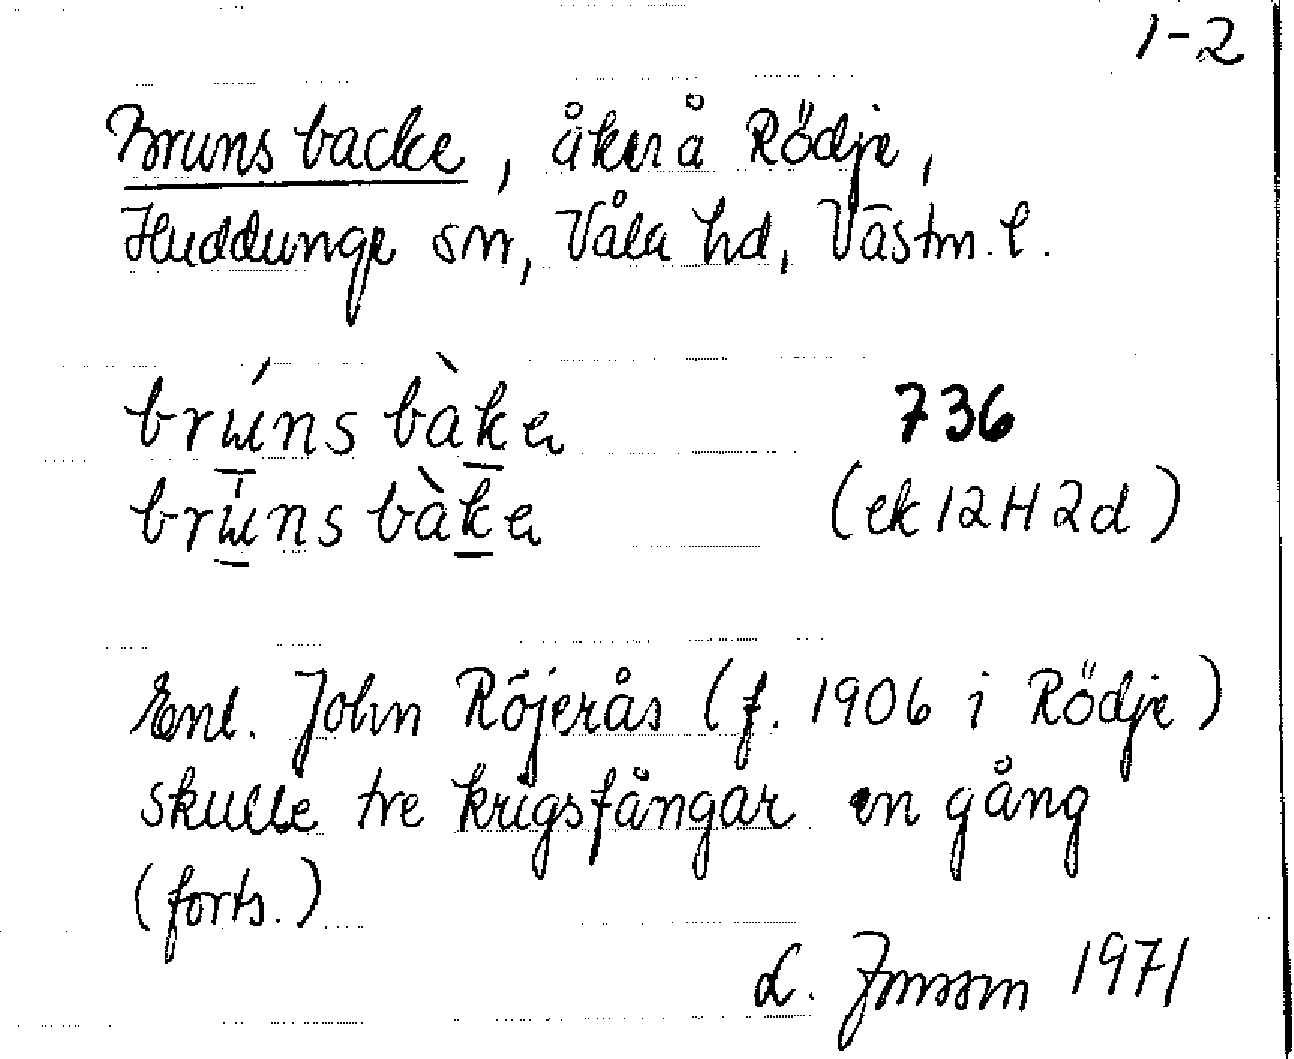 1-2
Bruns backe, åker å Rödje,
Huddunge sn, Våla hd, Västm. l.
brúns bàke
736
brúns bàke
(ek 12H2d)
Enl. John Röjerås (f. 1906 i Rödje)
skulle tre krigsfångar en gång
(forts.)
L. Jonsson 1971